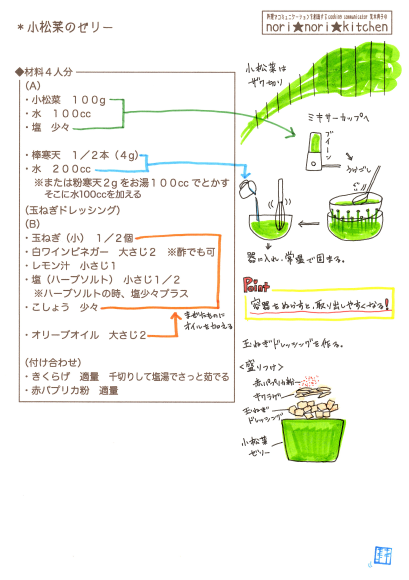 料理でコミュニケーションを創造するcooking communicator
nori★nori★kitchen
＊小松菜のゼリー
◆材料４人分
（A）
・小松菜　１００g
・水　１００cc
・塩　少々
・棒寒天　１／２本（４g）
・水　２００cc
※または粉寒天２gをお湯１００ccでとかす
そこに水100ccを加える
（玉ねぎドレッシング）
（B）
・玉ねぎ（小）　１／２個
・白ワインビネガー　大さじ２　※酢でも可
・レモン汁　小さじ１
・塩（ハーブソルト）　小さじ１／２
※ハーブソルトの時、塩少々プラス
・こしょう　少々
まぜたものに
オイルを加える
・オリーブオイル　大さじ２
（付け合わせ）
・きくらげ　適量　千切りして塩湯でさっと茹でる
・赤パプリカ粉　適量
小松菜は
ザク切り
ミキサーカップへ
ブイーン
うらごし
器に入れ、常温で固まる。
Point
容器をぬらすと、取り出しやすくなる！
玉ねぎドレッシングを作る。
＜盛りつけ＞
赤パプリカ粉
キクラゲ
玉ねぎ
ドレッシング
小松菜
ゼリー